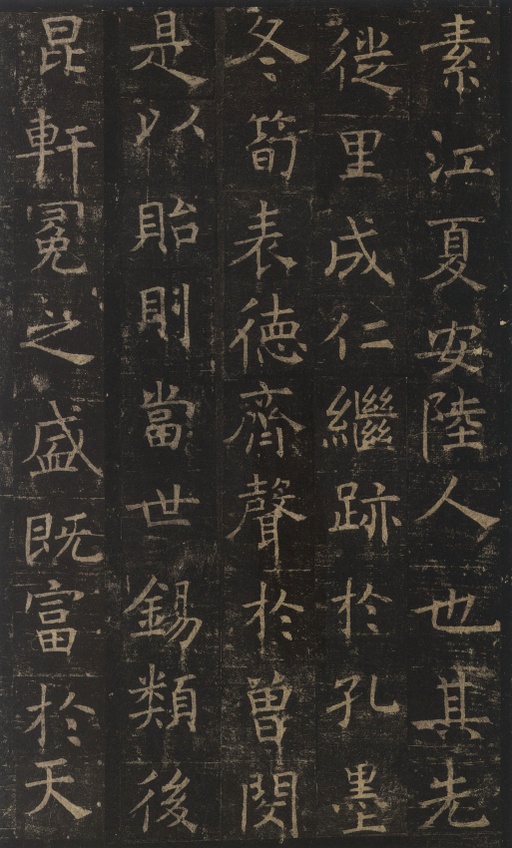 素江夏安陸人也其先
徙里成仁繼跡於孔墨
冬筍表德齊聲於曽閔
是以貽則當世錫類後
昆軒冕之盛既富於天